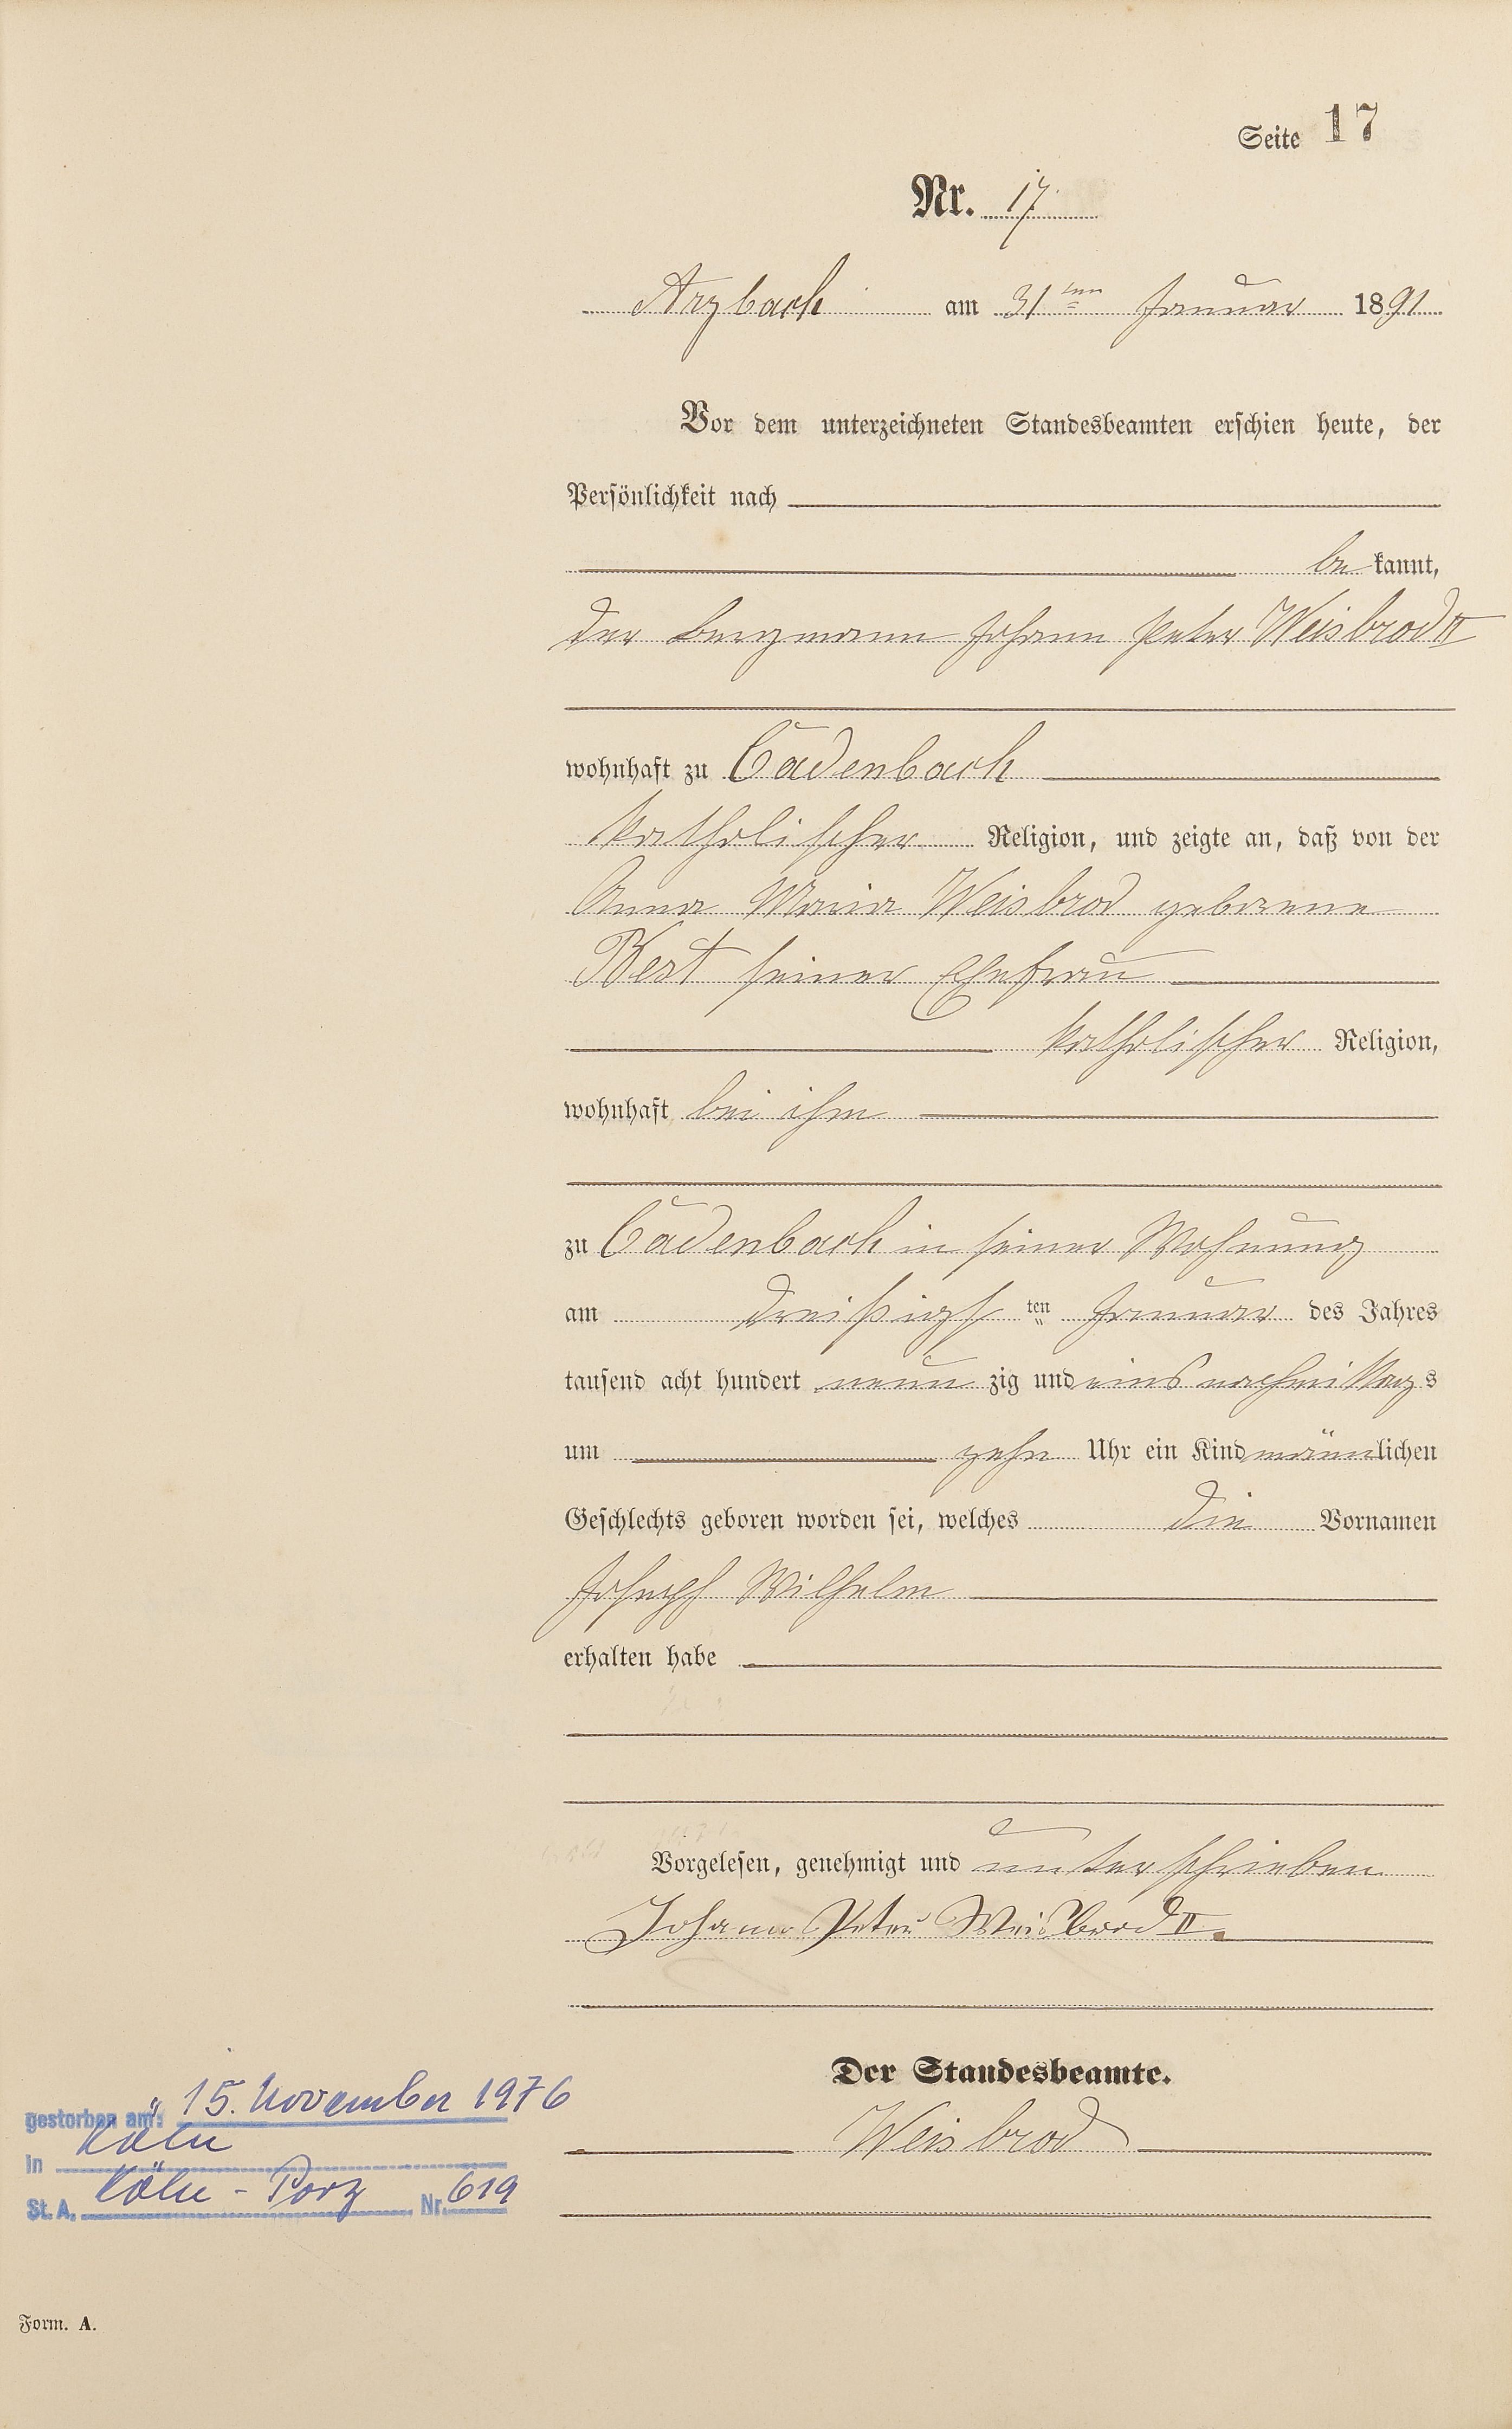 Seite 17
Nr. 17
Arzbach am 31ten Januar 1891
Vor dem unterzeichneten Standesbeamten erschien heute, der
Persönlichkeit nach
be kannt,
der Bergmann Johann Peter Weisbrod II
wohnhaft zu Cadenbach
katholischer Religion, und zeigte an, daß von der
Anna Maria Weisbrod geborene
Best seiner Ehefrau
katholischer Religion,
wohnhaft bei ihm
zu Cadenbach in seiner Wohnung
am dreißigsten Januar des Jahres
tausend acht hundert neun zig und eins nachmittags
um zehn Uhr ein Kind männlichen
Geschlechts geboren worden sei, welches die Vornamen
Joseph Wilhelm
erhalten habe
Vorgelesen, genehmigt und unterschrieben
Johann Peter Weisbrod II.
Der Standesbeamte.
Weisbrod
gestorben am: 15. November 1976
in Köln
St. A. Köln - Porz Nr. 619
Form. A.